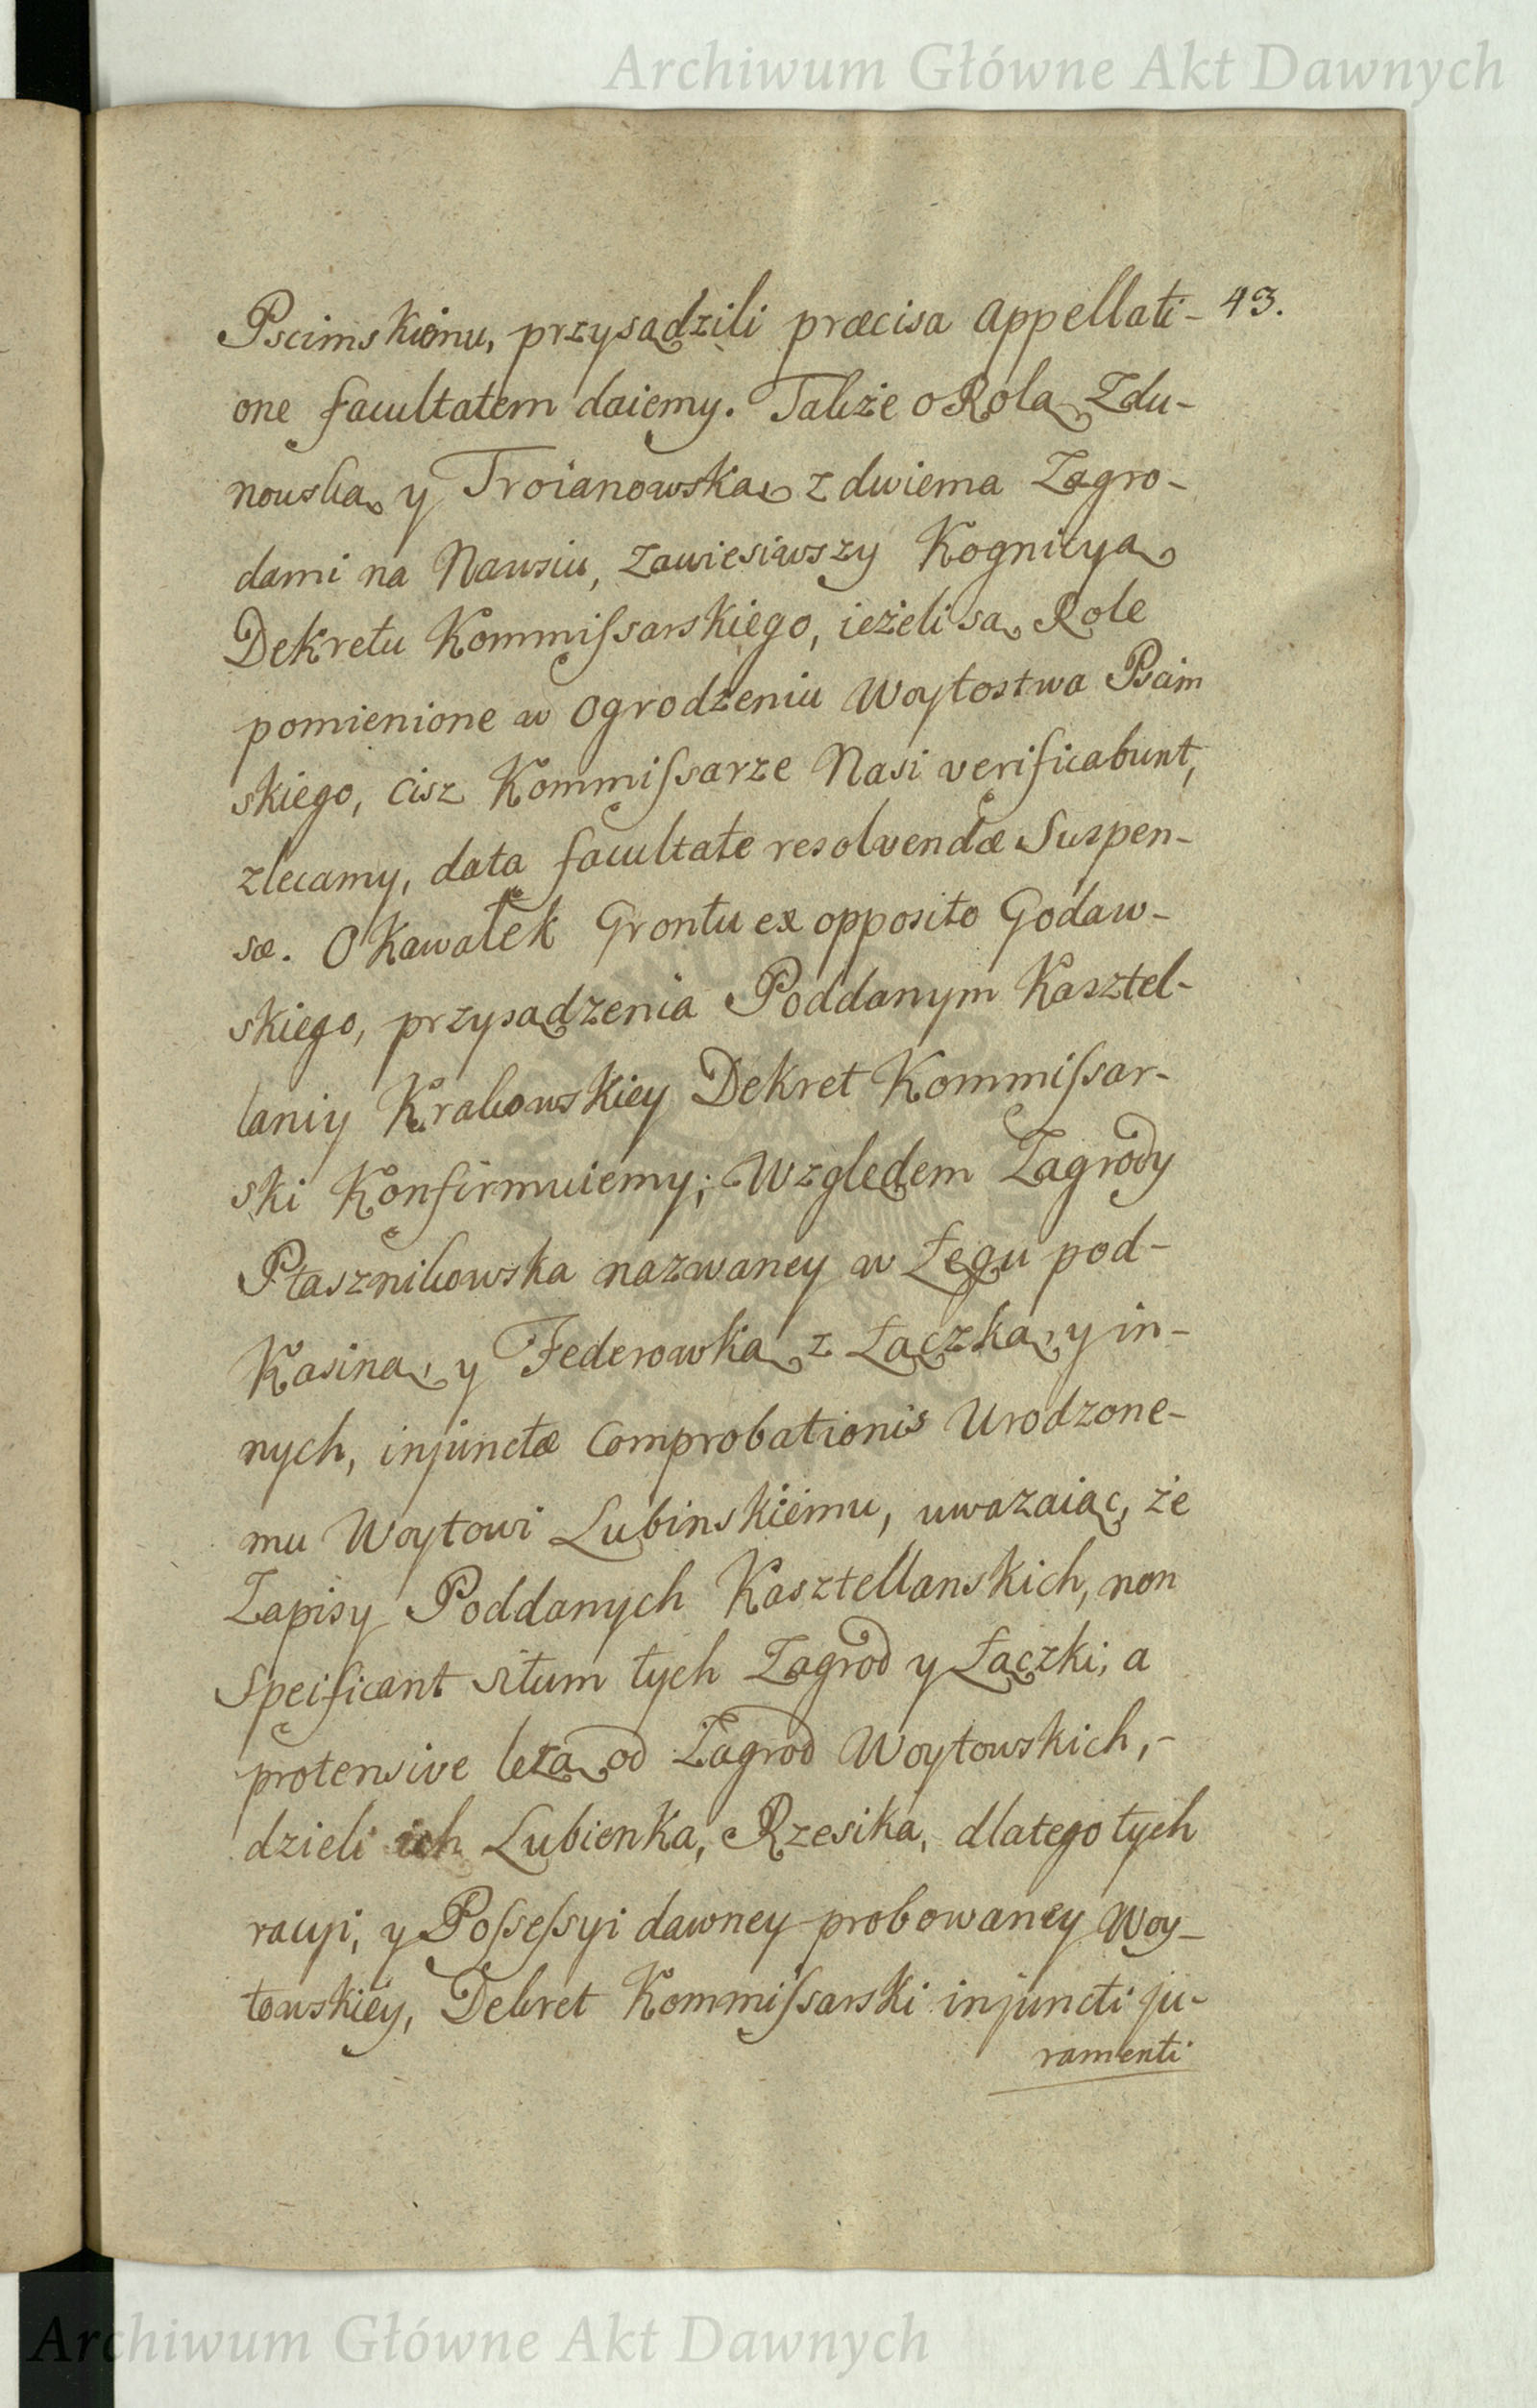 Archiwum Główne Akt Dawnych
43.
Pscimskiemu, przysądzili præcisa appellati-
one facultatem daiemy. Także o Rolą Zdu-
nowską y Troianowską z dwiema Zagro-
dami na Nawsiu, zawiesiwszy Kognicyą
Dekretu Kommissarskiego, ieżeli są Role
pomienione w Ogrodzeniu Woytostwa Pscim
skiego, cisz Kommissarze Nasi verificabunt,
zlecamy, data facultate resolvendæ Suspen-
sæ. O Kawałek Grontu ex opposito Godaw-
skiego, przysądzenia Poddanym Kasztel-
laniy Krakowskiey Dekret Kommissar-
ski Konfirmuiemy; Względem Zagrody
Ptasznikowska nazwaney w Łęgu pod-
Kasiną, y Federowką z Łączką, y in-
nych, injunctæ Comprobationis Urodzone-
mu Woytowi Lubinskiemu, uwazaiąc, że
Zapisy Poddanych Kasztellanskich, non
Speificant situm tych Zagrod y Łączki, a
protensive leżą od Zagrod Woytowskich,-
dzieli ich Lubienka, Rzesika, dlatego tych
racyi, y Possessyi dawney probowaney Woy-
towskiey, Dekret Kommissarski injuncti ju-
ramenti
Archiwum Główne Akt Dawnych